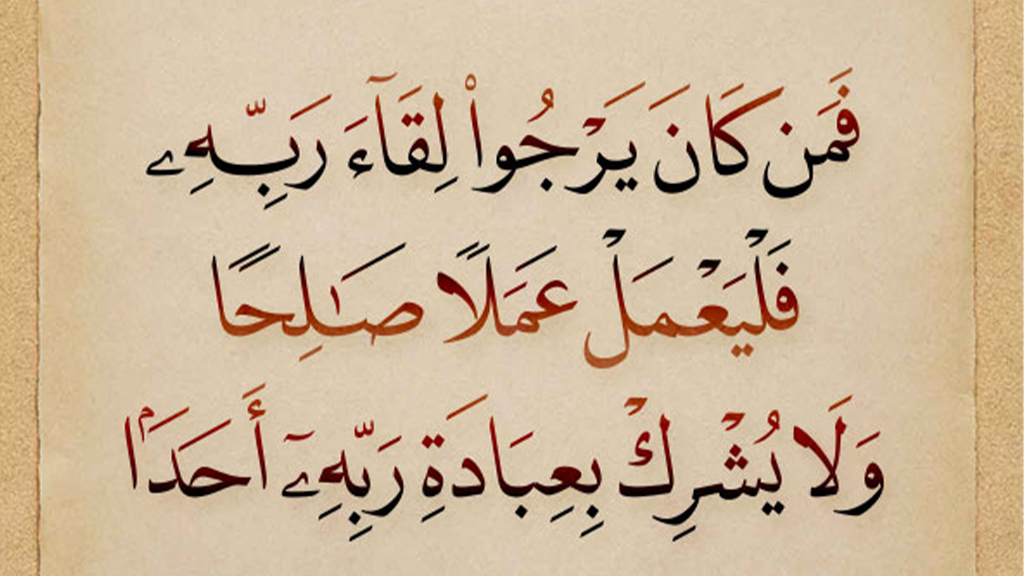 فَمَن كَانَ يَرْجُوا۟ لِقَآءَ رَبِّهِۦ
فَلْيَعْمَلْ عَمَلًا صَـٰلِحًا
وَلَا يُشْرِكْ بِعِبَادَةِ رَبِّهِۦٓ أَحَدَۢا